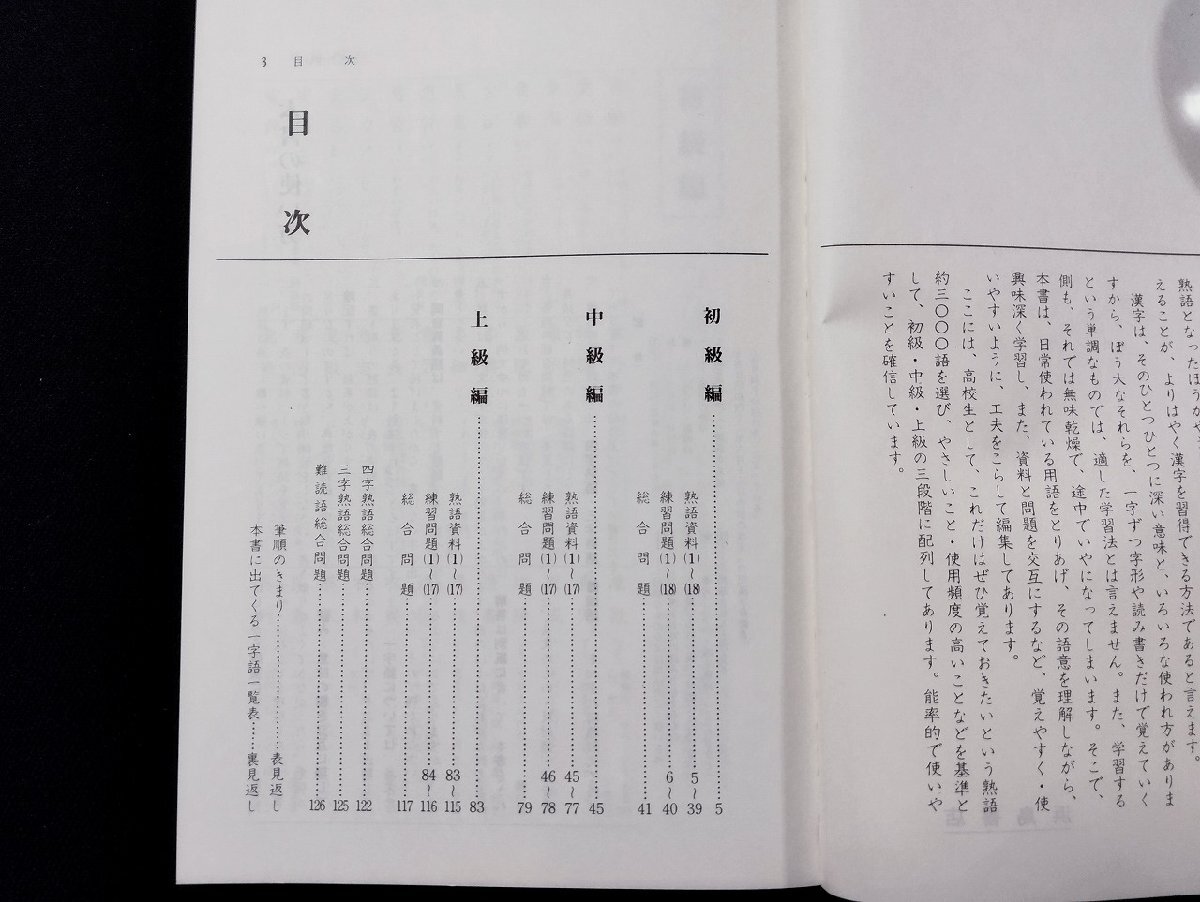 熟語となったほうがや
えることが、よりはやく漢字を習得できる方法であると言えます。
漢字は、そのひとつひとつに深い意味と、いろいろな使われ方がありま
すから、ぼう大なそれらを、一字ずつ字形や読み書きだけで覚えていく
という単調なものでは、適した学習法とは言えません。また、学習する
側も、それでは無味乾燥で、途中でいやになってしまいます。そこで、
本書は、日常使われている用語をとりあげ、その語意を理解しながら、
興味深く学習し、また、資料と問題を交互にするなど、覚えやすく・使
いやすいように、工夫をこらして編集してあります。
ここには、高校生として、これだけはぜひ覚えておきたいという熟語
約三〇〇〇語を選び、やさしいこと・使用頻度の高いことなどを基準と
して、初級・中級・上級の三段階に配列してあります。能率的で使いや
すいことを確信しています。
3 目次
目次
初級編……5
熟語資料(1)〜(18)……5〜39
練習問題(1)〜(18)……6〜40
総合問題……41
中級編……45
熟語資料(1)〜(17)……45〜77
練習問題(1)〜(17)……46〜78
総合問題……79
上級編……83
熟語資料(1)〜(17)……83〜115
練習問題(1)〜(17)……84〜116
総合問題……117
四字熟語総合問題……122
三字熟語総合問題……125
難読語総合問題……126
筆順のきまり……表見返し
本書に出てくる一字語一覧表……裏見返し